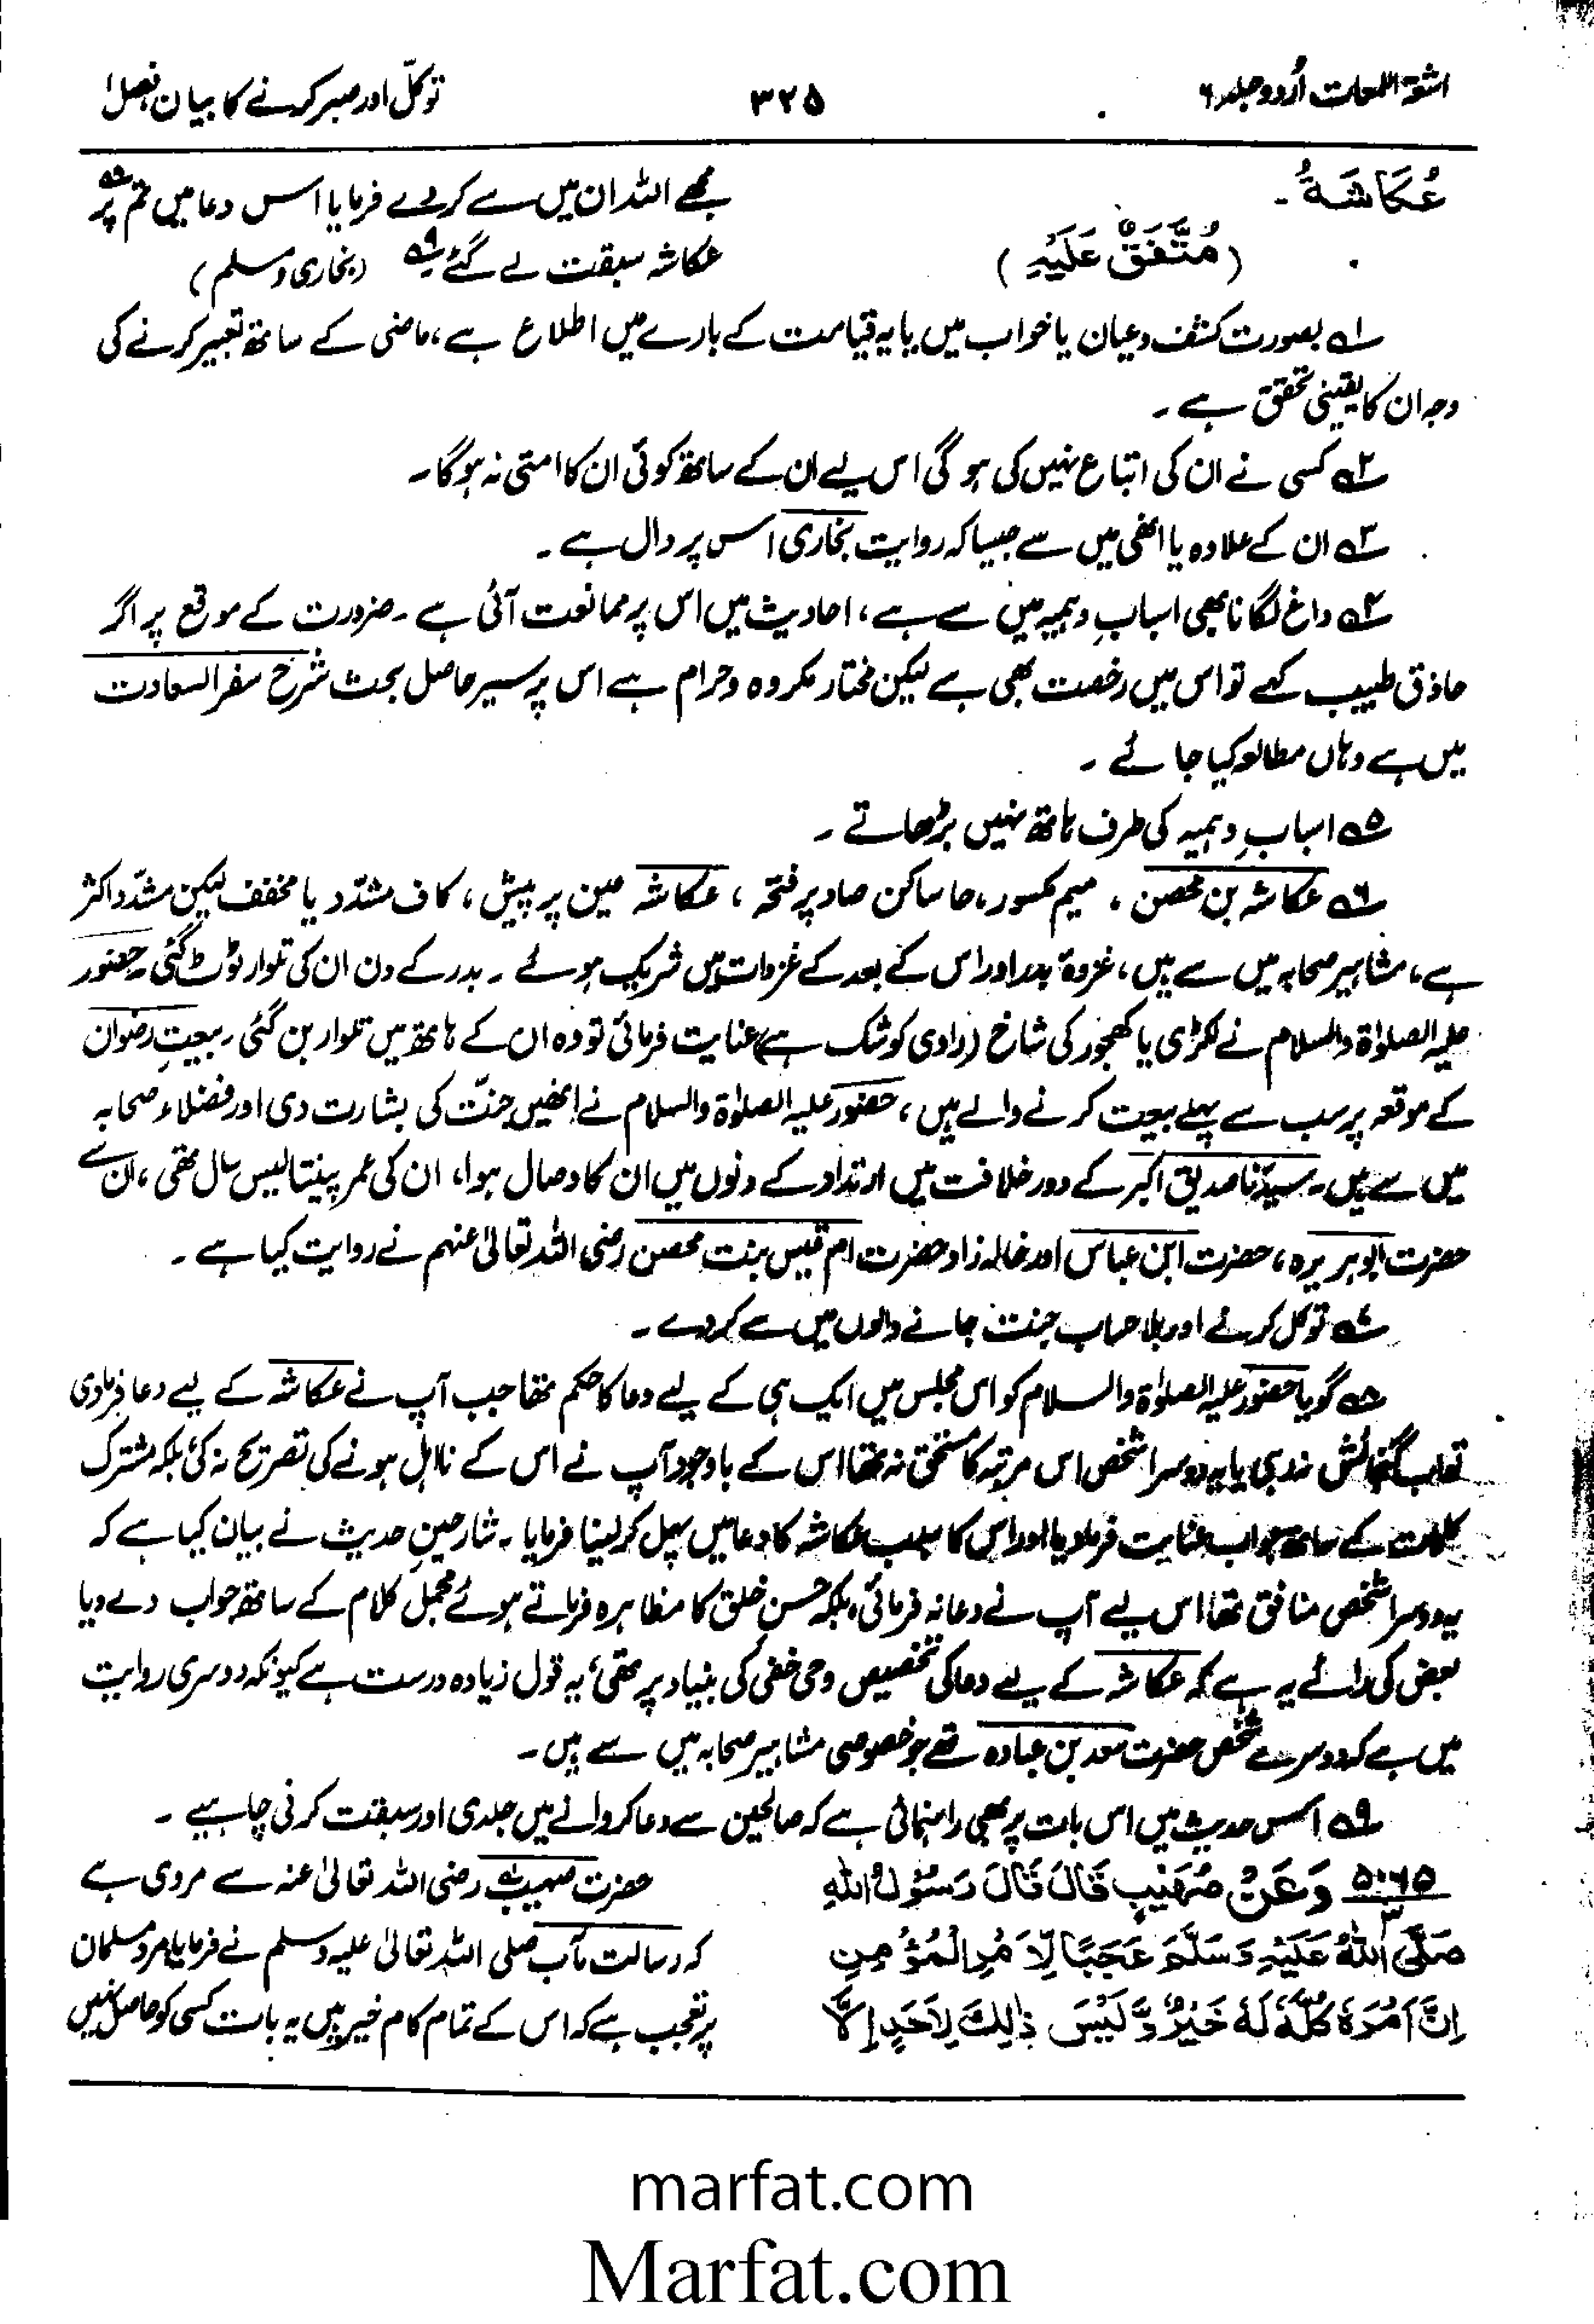 اشعۃ اللمعات اُردو جلد ۶
۳۲۵
توکّل اور صبر کرنے کا بیان فصل ۱
عُكَاشَةُ۔
(مُتَّفَقٌ عَلَيْهِ)
مجھے اللہ ان میں سے کر دے فرمایا اس دعا میں تم پر ۸؎
عکاشہ سبقت لے گئے ۹؎ (بخاری و مسلم)
۱؎ بصورت کشف و عیان یا خواب میں یا یہ قیامت کے بارے میں اطلاع ہے، ماضی کے ساتھ تعبیر کرنے کی
وجہ ان کا یقینی تحقق ہے۔
۲؎ کسی نے ان کی اتباع نہیں کی ہو گی اس لیے ان کے ساتھ کوئی ان کا امتی نہ ہو گا۔
۳؎ ان کے علاوہ یا انھی میں سے جیسا کہ روایت بخاری اس پر دال ہے۔
۴؎ داغ لگانا بھی اسبابِ وہمیہ میں سے ہے، احادیث میں اس پر ممانعت آئی ہے۔ ضرورت کے موقع پر اگر
حاذق طبیب کہے تو اس میں رخصت بھی ہے لیکن مختار مکروہ و حرام ہے اس پر سیر حاصل بحث شرح سفر السعادت
میں ہے وہاں مطالعہ کیا جائے۔
۵؎ اسبابِ وہمیہ کی طرف ہاتھ نہیں بڑھاتے۔
۶؎ عکاشہ بن محصن، میم مکسور، حا ساکن صاد پر فتحہ، عکاشہ عین پر پیش، کاف مشدّد یا مخفف لیکن مشدّد اکثر
ہے، مشاہیر صحابہ میں سے ہیں، غزوۂ بدر اور اس کے بعد کے غزوات میں شریک ہوئے۔ بدر کے دن ان کی تلوار ٹوٹ گئی۔ حضور
علیہ الصلوٰۃ والسلام نے لکڑی یا کھجور کی شاخ (راوی کو شک ہے) عنایت فرمائی تو وہ ان کے ہاتھ میں تلوار بن گئی۔ بیعتِ رضوان
کے موقعہ پر سب سے پہلے بیعت کرنے والے ہیں، حضور علیہ الصلوٰۃ والسلام نے انھیں جنّت کی بشارت دی اور فضلاء صحابہ
میں سے ہیں۔ سیّدنا صدیق اکبر کے دور خلافت میں ارتداد کے دنوں میں ان کا وصال ہوا، ان کی عمر پینتالیس سال تھی، ان سے
حضرت ابو ہریرہ، حضرت ابن عباس اور خالہ زاد حضرت ام قیس بنت محصن رضی اللہ تعالیٰ عنہم نے روایت کیا ہے۔
۷؎ توکل کرنے اور بلا حساب جنت جانے والوں میں سے کر دے۔
۸؎ گویا حضور علیہ الصلوٰۃ والسلام کو اس مجلس میں ایک ہی کے لیے دعا کا حکم تھا جب آپ نے عکاشہ کے لیے دعا فرما دی
تو اب گنجائش نہ رہی یا یہ دوسرا شخص اس مرتبہ کا مستحق نہ تھا اس کے باوجود آپ نے اس کے نااہل ہونے کی تصریح نہ کی بلکہ مشترک
کلمات کے ساتھ جواب عنایت فرما دیا اور اس کا سبب عکاشہ کا دعا میں پہل کر لینا فرمایا۔ شارحینِ حدیث نے بیان کیا ہے کہ
یہ دوسرا شخص منافق تھا اس لیے آپ نے دعا نہ فرمائی، بلکہ حسنِ خلق کا مظاہرہ فرماتے ہوئے مجمل کلام کے ساتھ جواب دے دیا
بعض کی رائے یہ ہے کہ عکاشہ کے لیے دعا کی تخصیص وحی خفی کی بنیاد پر تھی، یہ قول زیادہ درست ہے کیونکہ دوسری روایت
میں ہے کہ دوسرے شخص حضرت سعد بن عبادہ تھے جو خصوصی مشاہیر صحابہ میں سے ہیں۔
۹؎ اس حدیث میں اس بات پر بھی راہنمائی ہے کہ صالحین سے دعا کروانے میں جلدی اور سبقت کرنی چاہیے۔
۵۰۶۵ وَعَنْ صُهَيْبٍ قَالَ قَالَ رَسُوْلُ اللهِ
صَلَّى اللهُ عَلَيْهِ وَسَلَّمَ عَجَبًا لِّاَمْرِ الْمُؤْمِنِ
اِنَّ اَمْرَهٗ كُلَّهٗ لَهٗ خَيْرٌ وَّ لَيْسَ ذٰلِكَ لِاَحَدٍ اِلَّا
حضرت صہیب ۱؎ رضی اللہ تعالیٰ عنہ سے مروی ہے
کہ رسالت مآب صلی اللہ تعالیٰ علیہ وسلم نے فرمایا مرد مسلمان
پر تعجب ہے کہ اس کے تمام کام خیر ہیں یہ بات کسی کو حاصل نہیں
marfat.com
Marfat.com